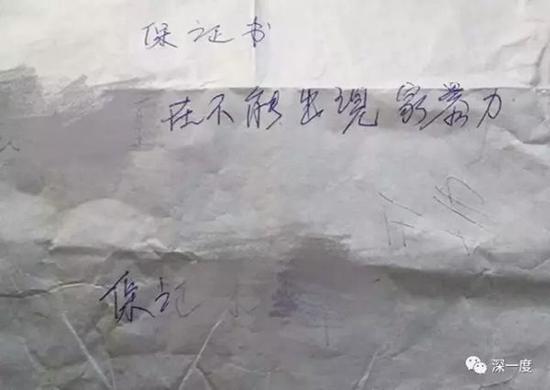 保证书
在不能出现家暴力
保证
深一度